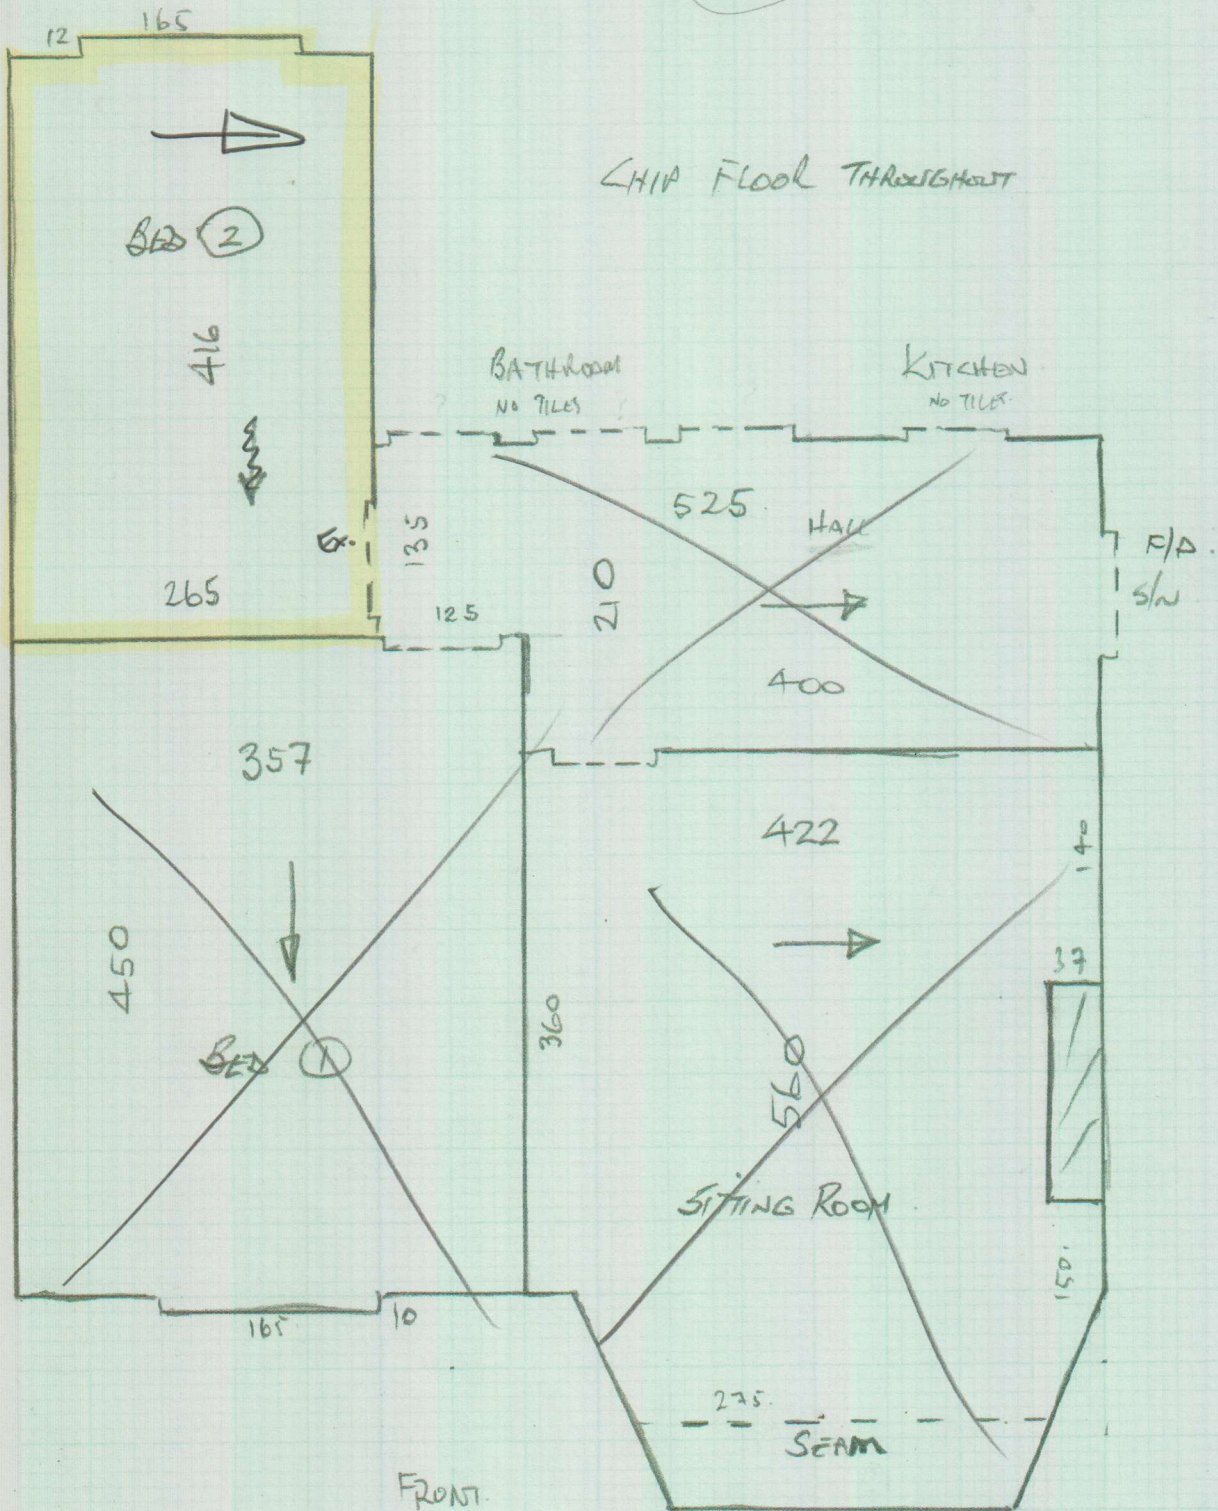 165
12
CHIP FLOOR THROUGHOUT
BED 2
416
BATHROOM
NO TILES
KITCHEN
NO TILES.
525
HALL
F/D.
S/N
Ex.
135
210
265
125
400
357
422
140
450
37
360
560
BED 1
SITTING ROOM
150.
165
10
275.
SEAM
FRONT.